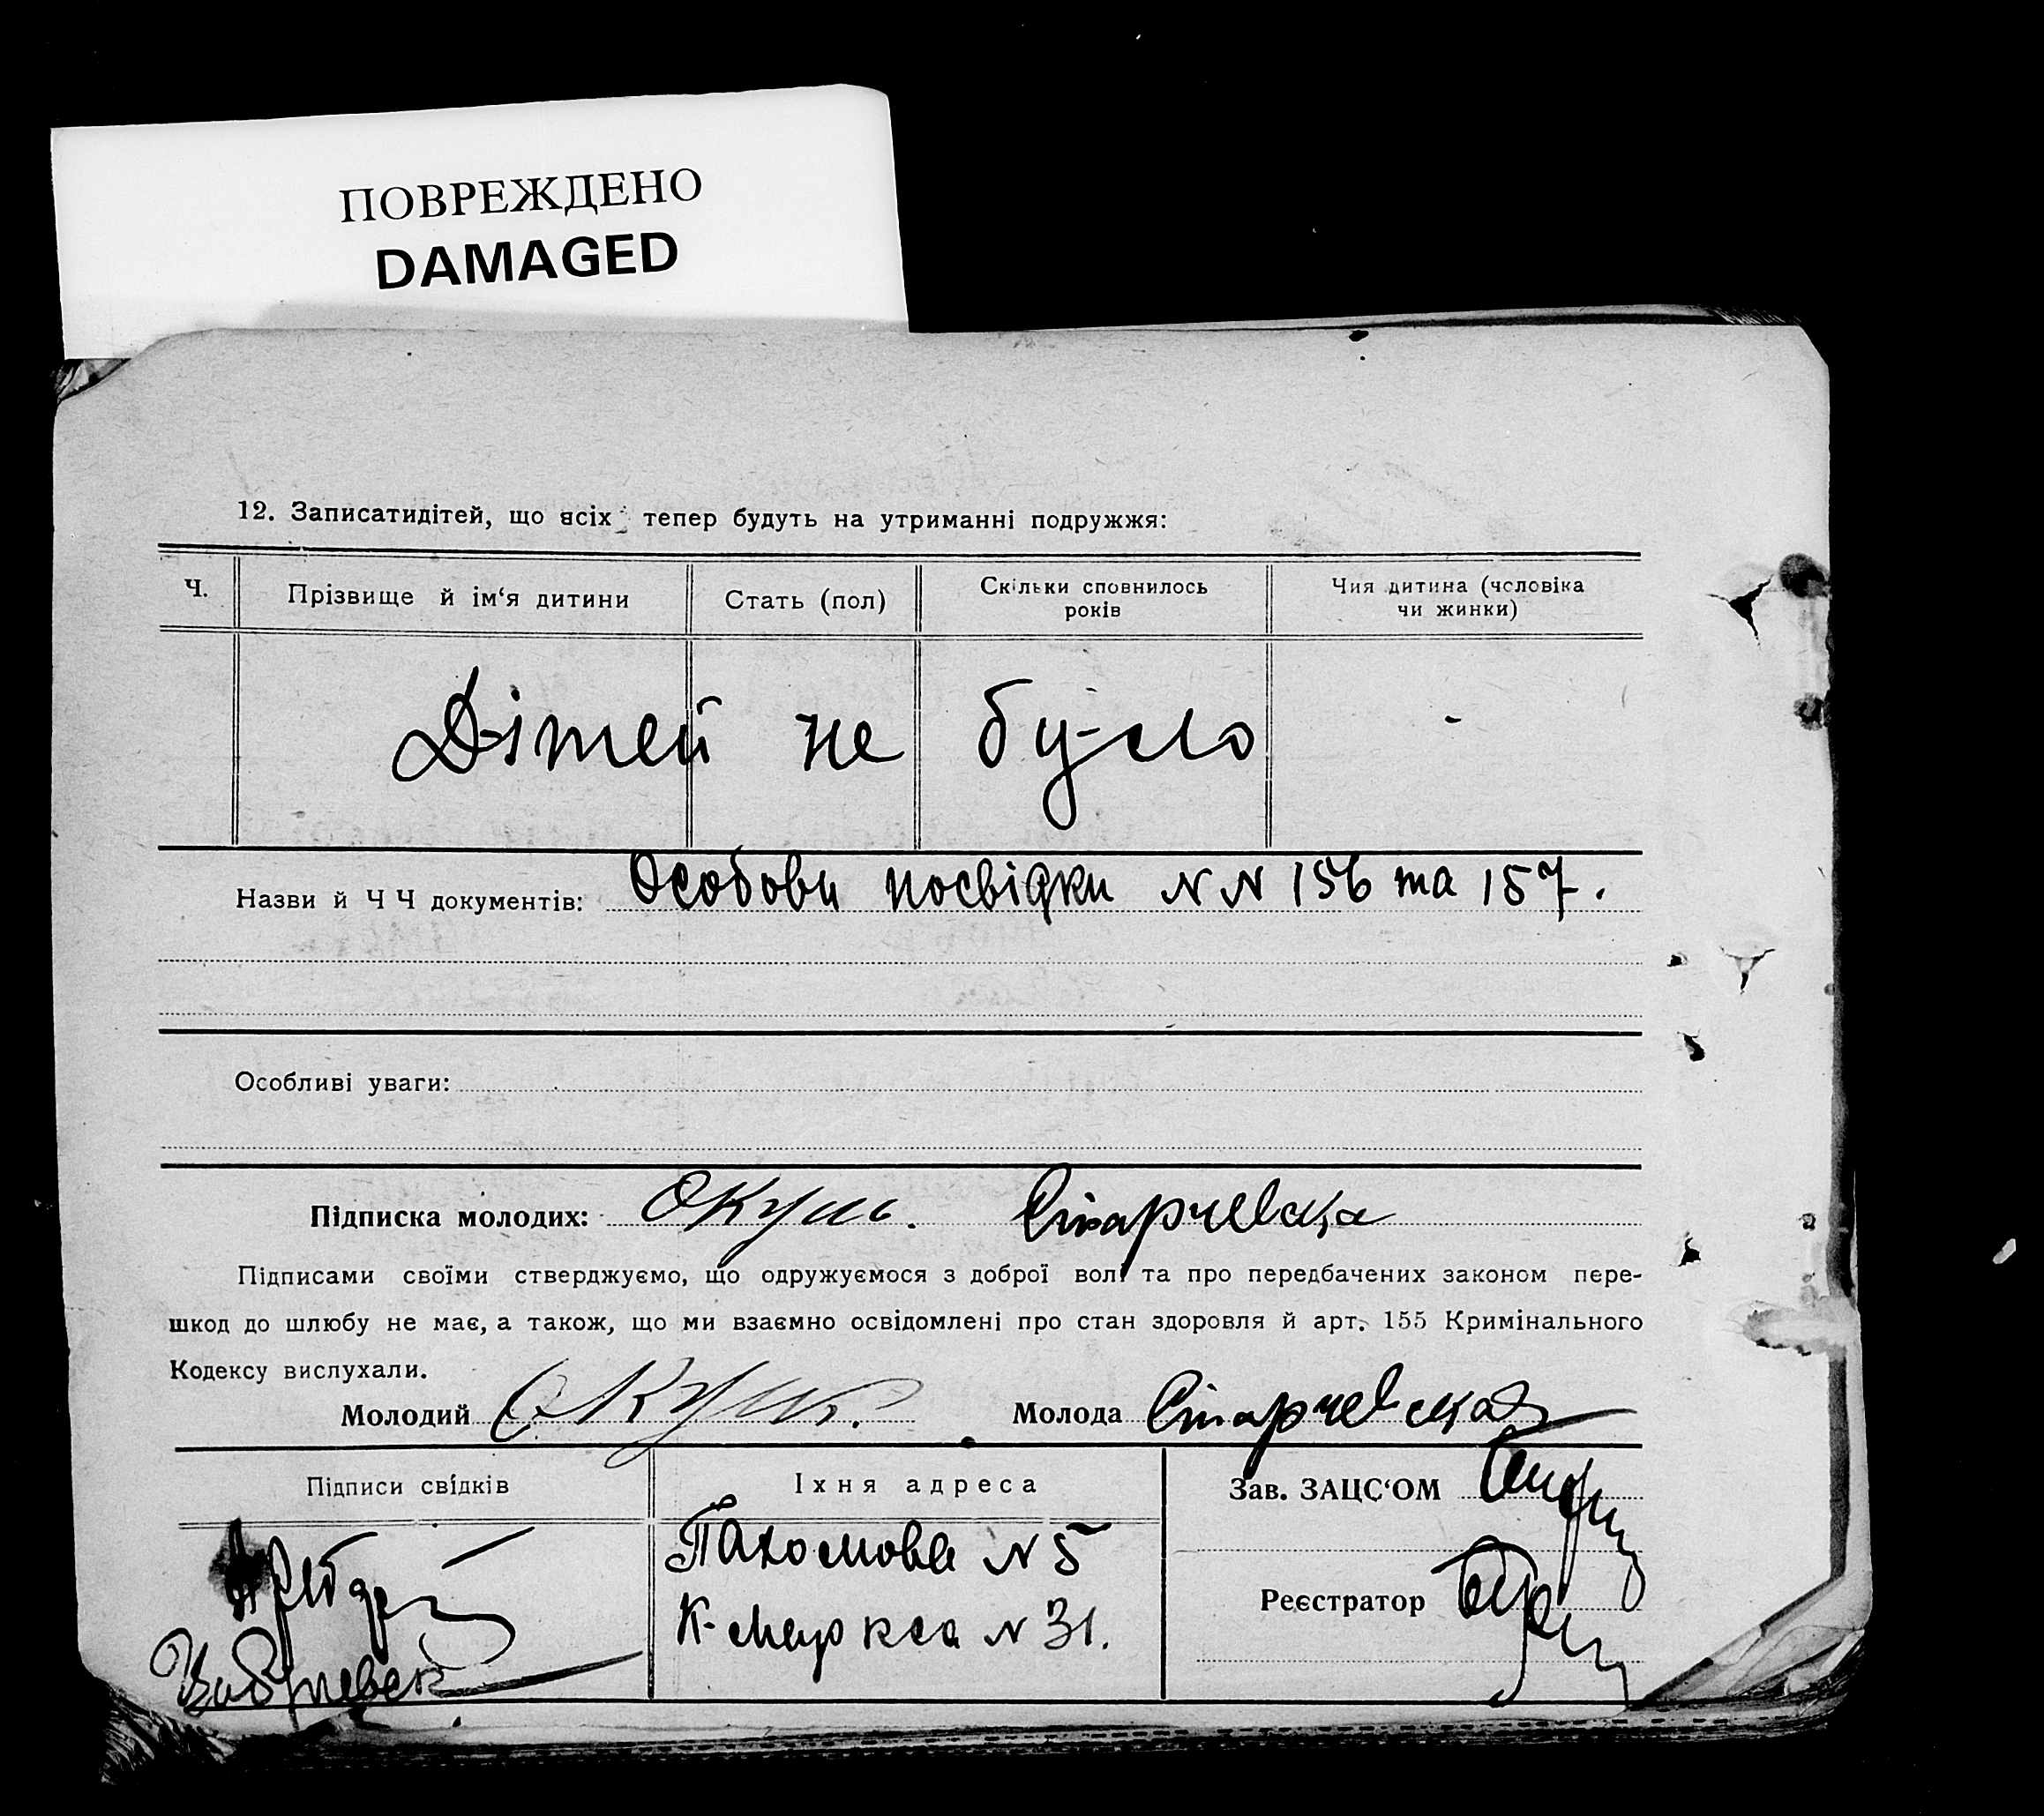 ПОВРЕЖДЕНО
DAMAGED
12. Записатидітей, що всіх тепер будуть на утриманні подружжя:
Ч. Прізвище й ім‘я дитини Стать (пол) Скільки сповнилось років Чия дитина (чоловіка чи жинки)
Дітей не було -
Назви й Ч Ч документів: Особови посвідки N N 156 та 157.
Особливі уваги:
Підписка молодих: Окунь. Старчевска
Підписами своїми стверджуємо, що одружуємося з доброї волі та про передбачених законом пере-
шкод до шлюбу не має, а також, що ми взаємно освідомлені про стан здоровля й арт. 155 Кримінального
Кодексу вислухали.
Молодий Окунь. Молода Старчевская
Підписи свідків Іхня адреса Зав. ЗАЦС‘ОМ
Пахомова N 5
Реєстратор
К-Маркса N 31.